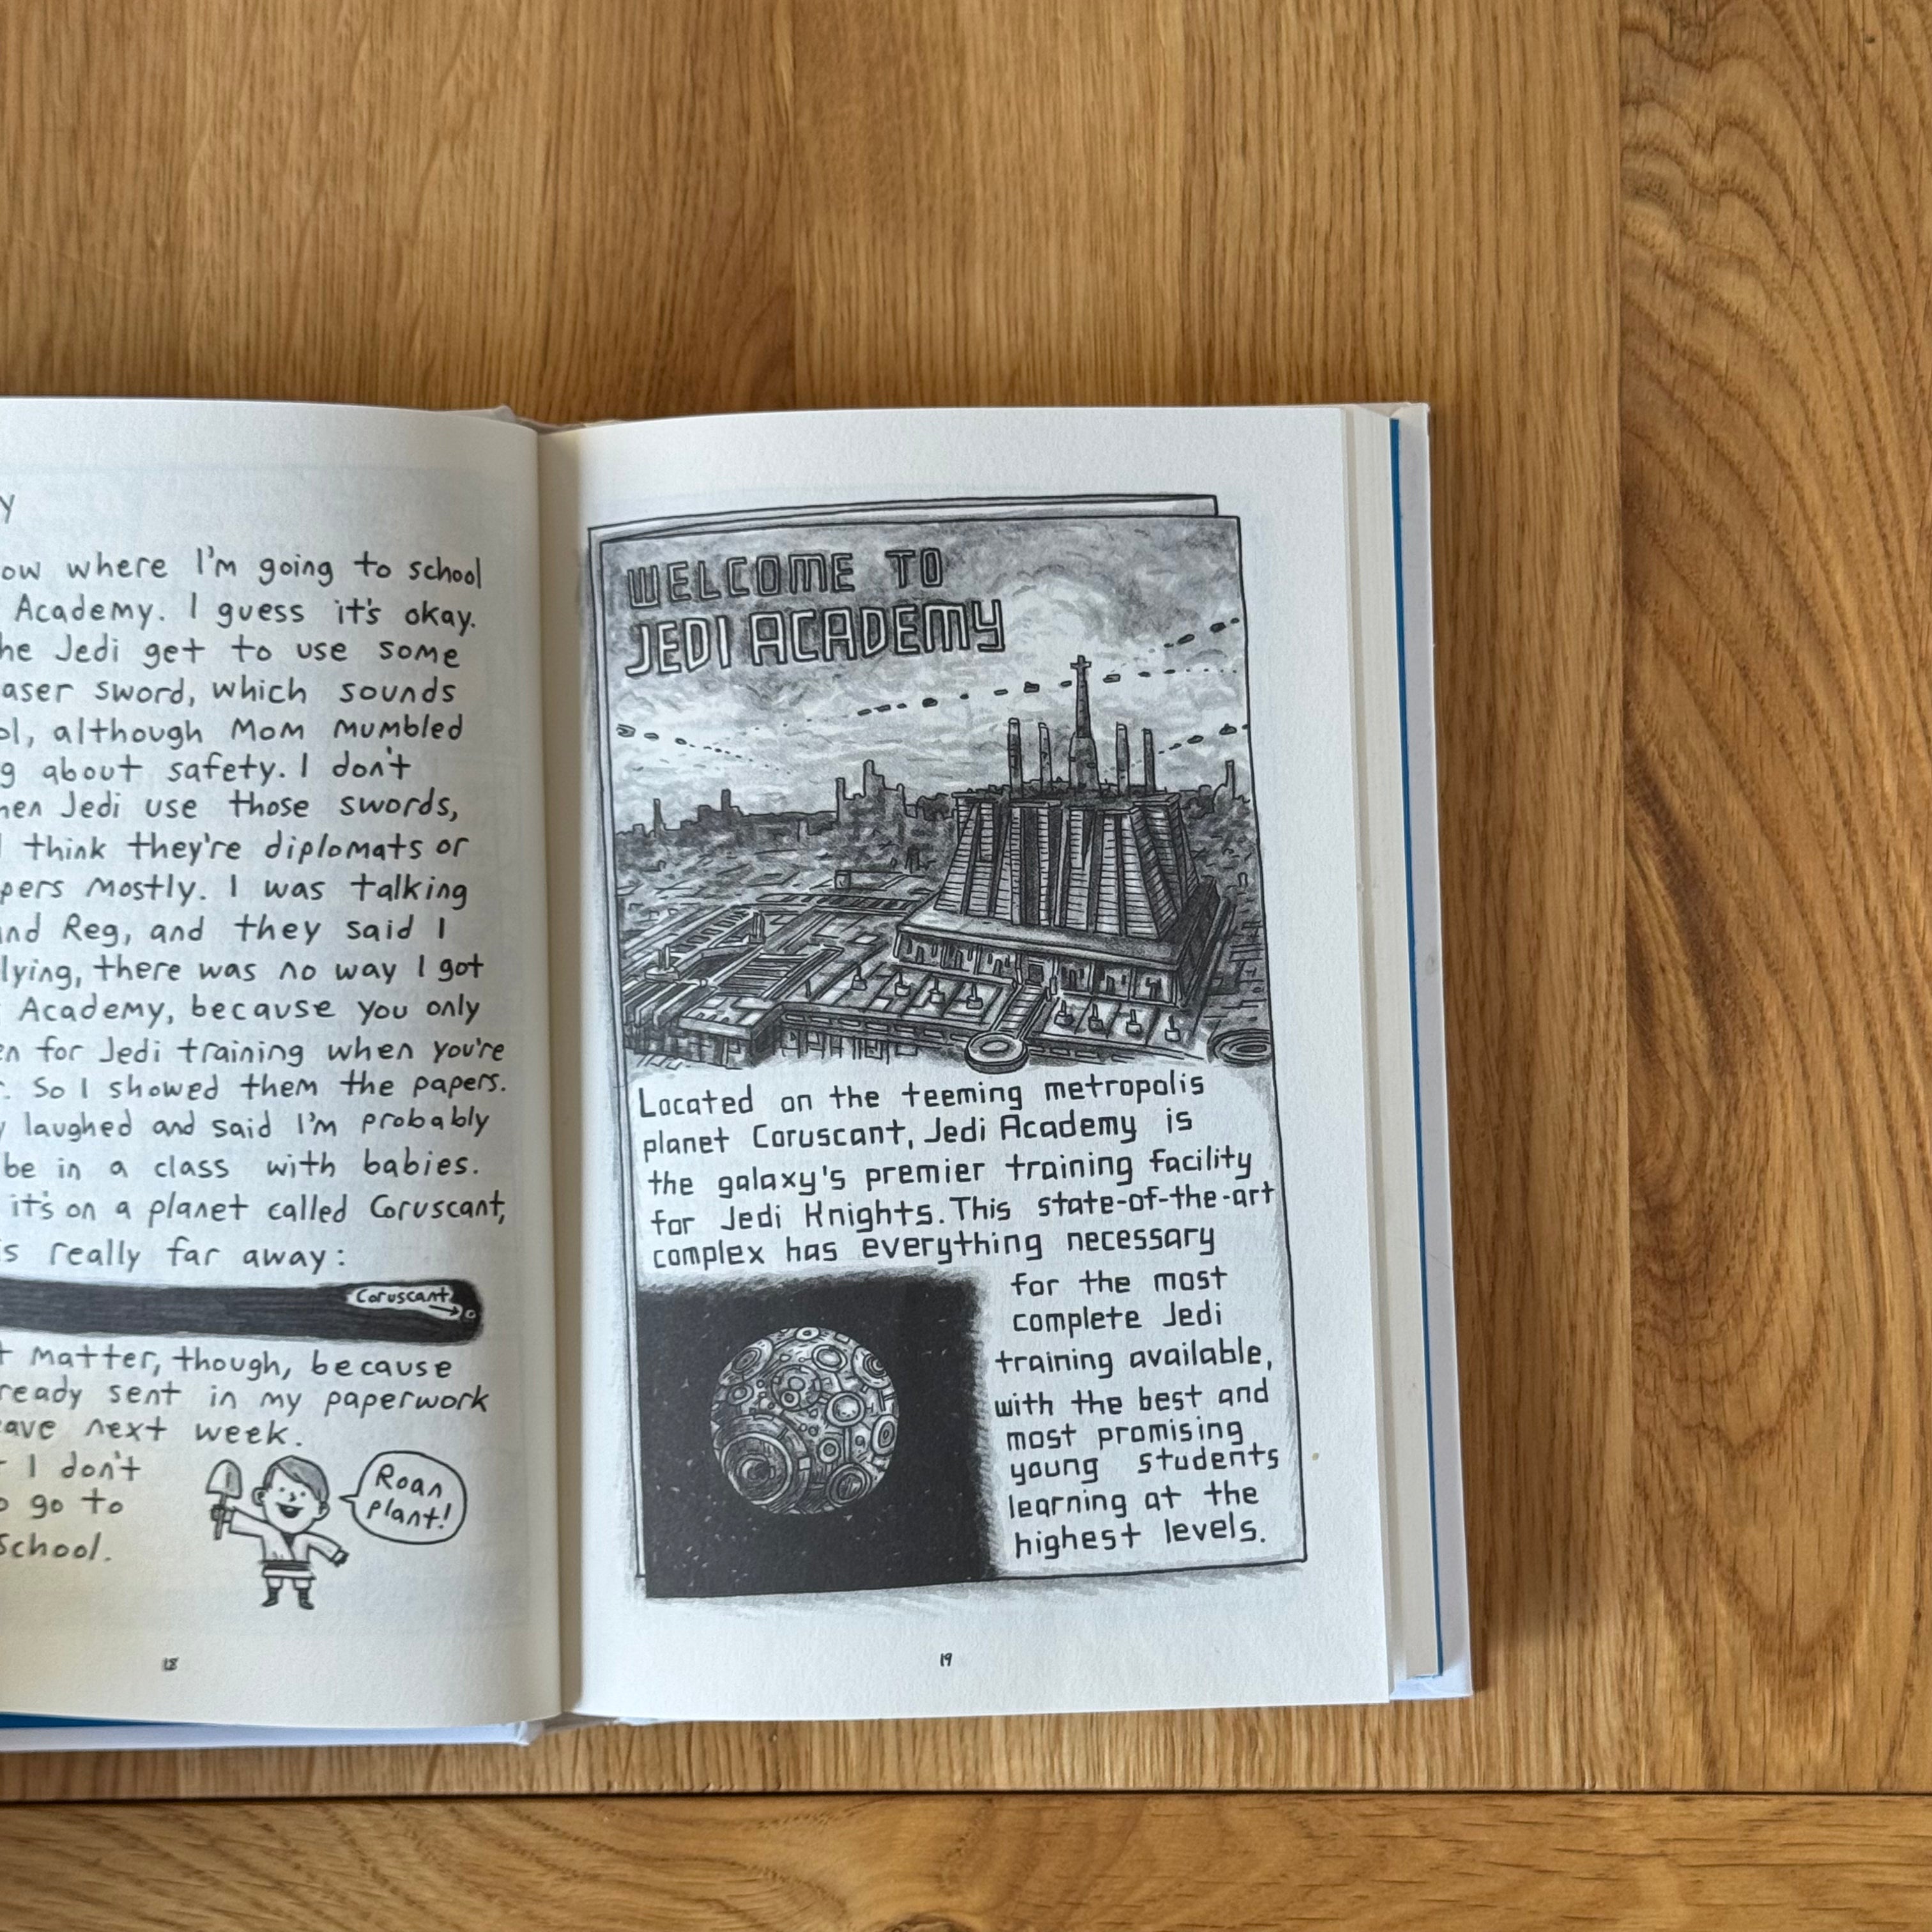 where I'm going to school
Academy. I guess it's okay.
Jedi get to use some
sword, which sounds
although Mom mumbled
about safety. I don't
Jedi use those swords,
I think they're diplomats or
mostly. I was talking
and Reg, and they said I
lying, there was no way I got
Academy, because you only
for Jedi training when you're
So I showed them the papers.
laughed and said I'm probably
be in a class with babies.
it's on a planet called Coruscant,
really far away:
Coruscant
matter, though, because
sent in my paperwork
next week.
I don't
go to
school.
Roan
plant!
18
WELCOME TO
JEDI ACADEMY
Located on the teeming metropolis
planet Coruscant, Jedi Academy is
the galaxy's premier training facility
for Jedi Knights. This state-of-the-art
complex has everything necessary
for the most
complete Jedi
training available,
with the best and
most promising
young students
learning at the
highest levels.
19